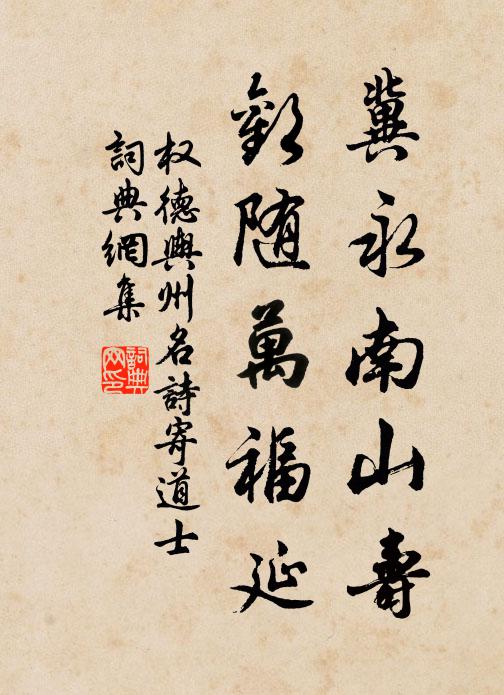 冀永南山壽
歡随萬福延
权德輿州名詩寄道士
詞典網集
詞典网印